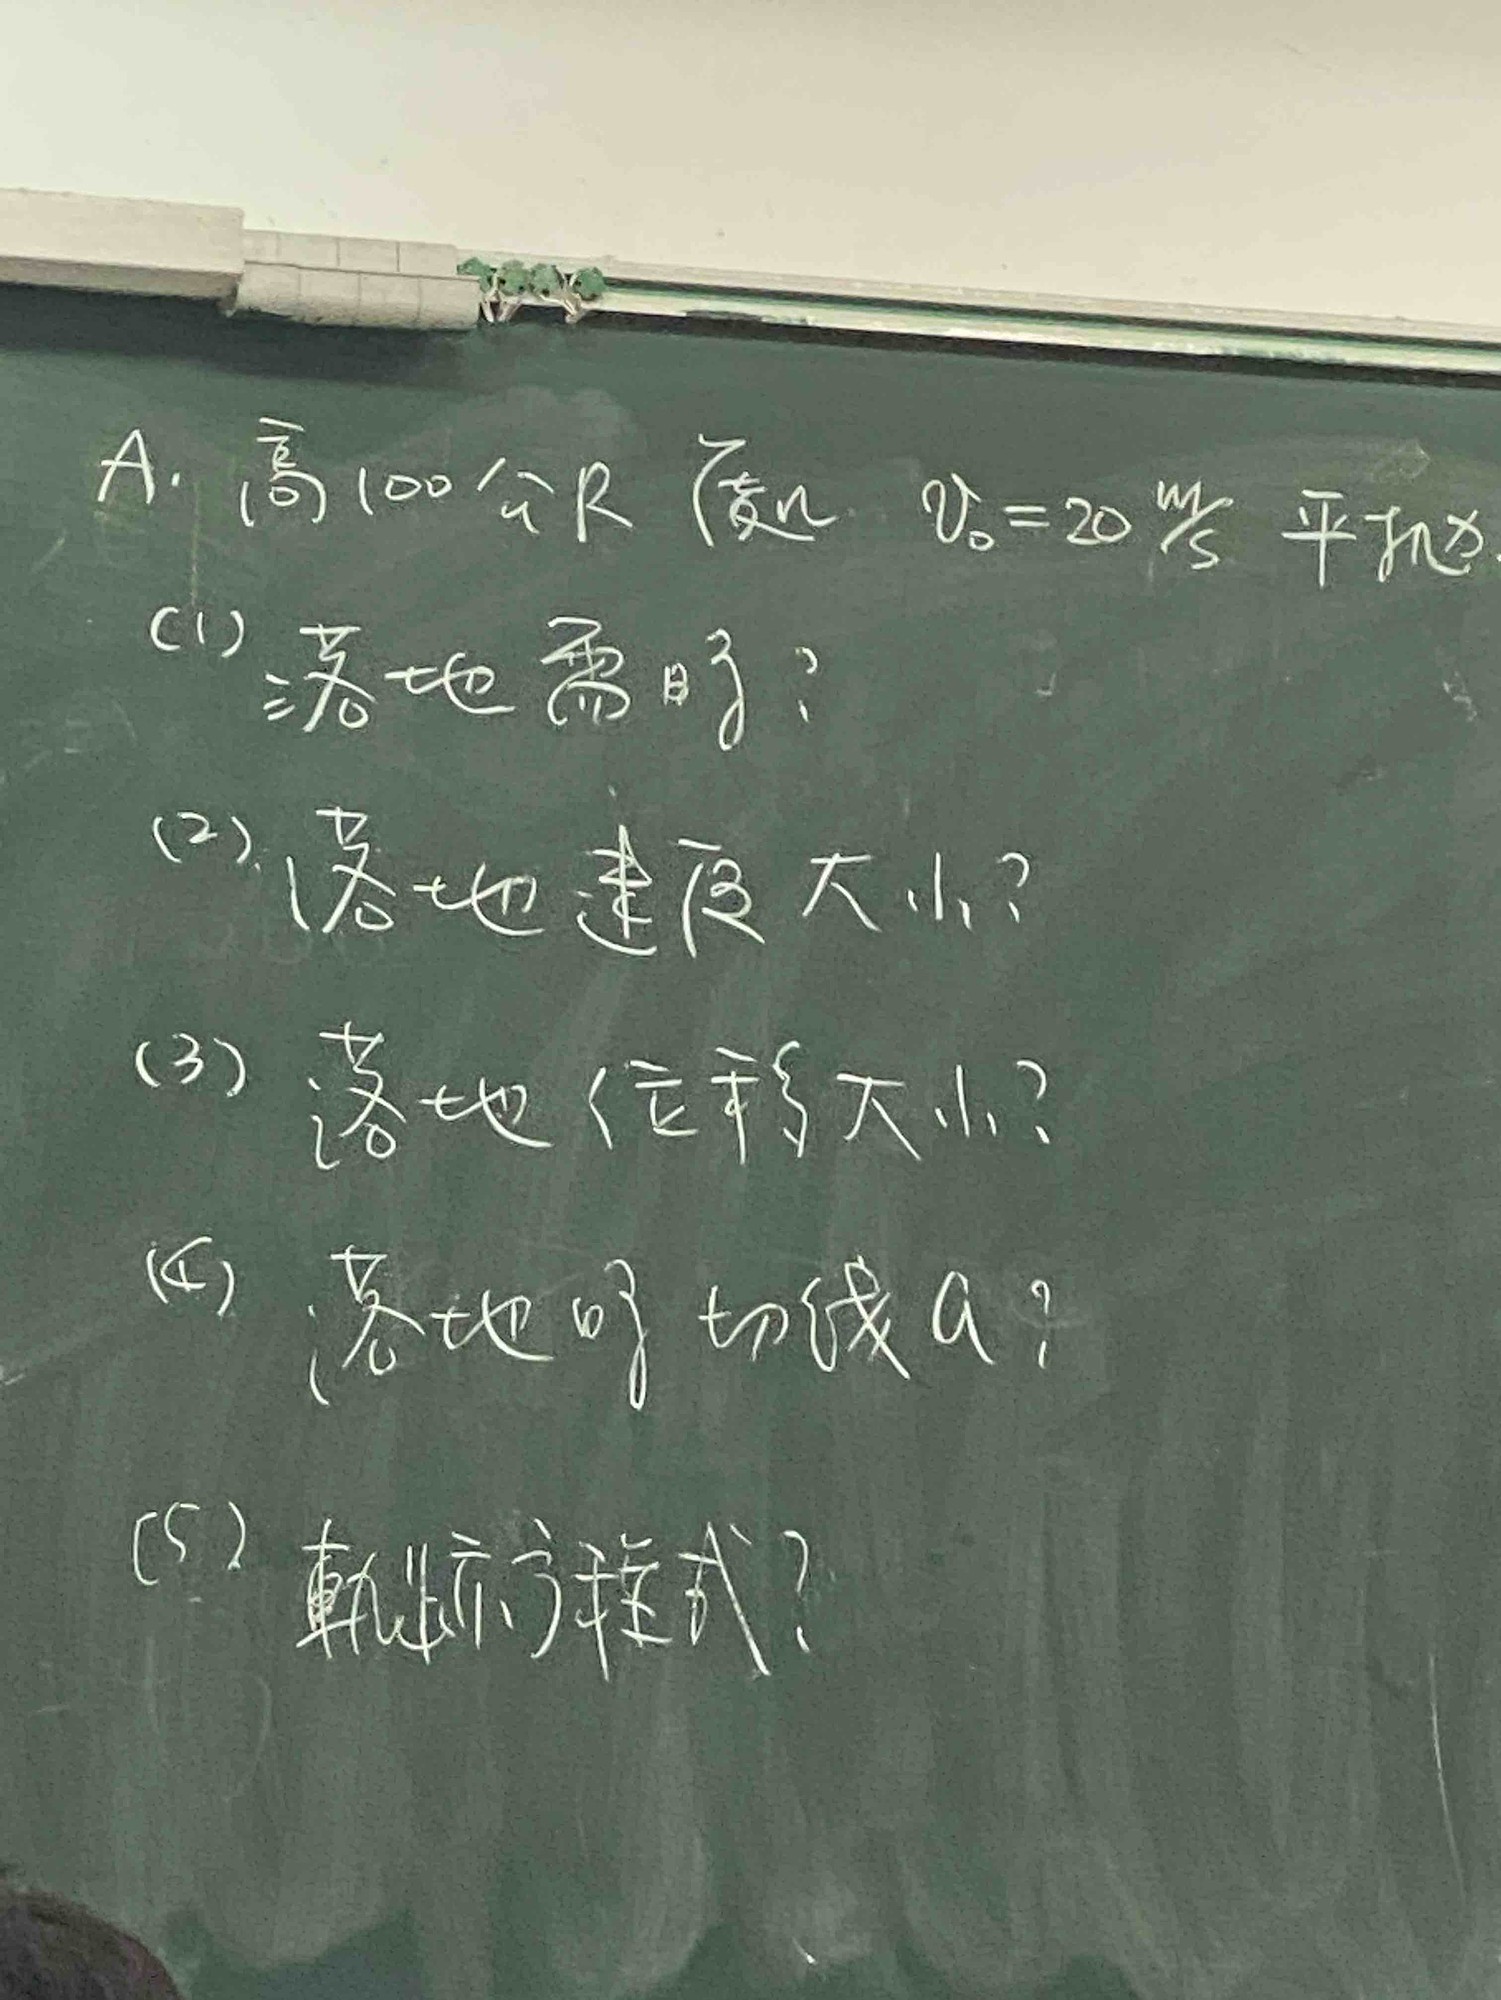 A. 高100公尺處以 v₀=20 m/s 平拋
(1) 落地需時?
(2) 落地速度大小?
(3) 落地位移大小?
(4) 落地時切線a?
(5) 軌跡方程式?